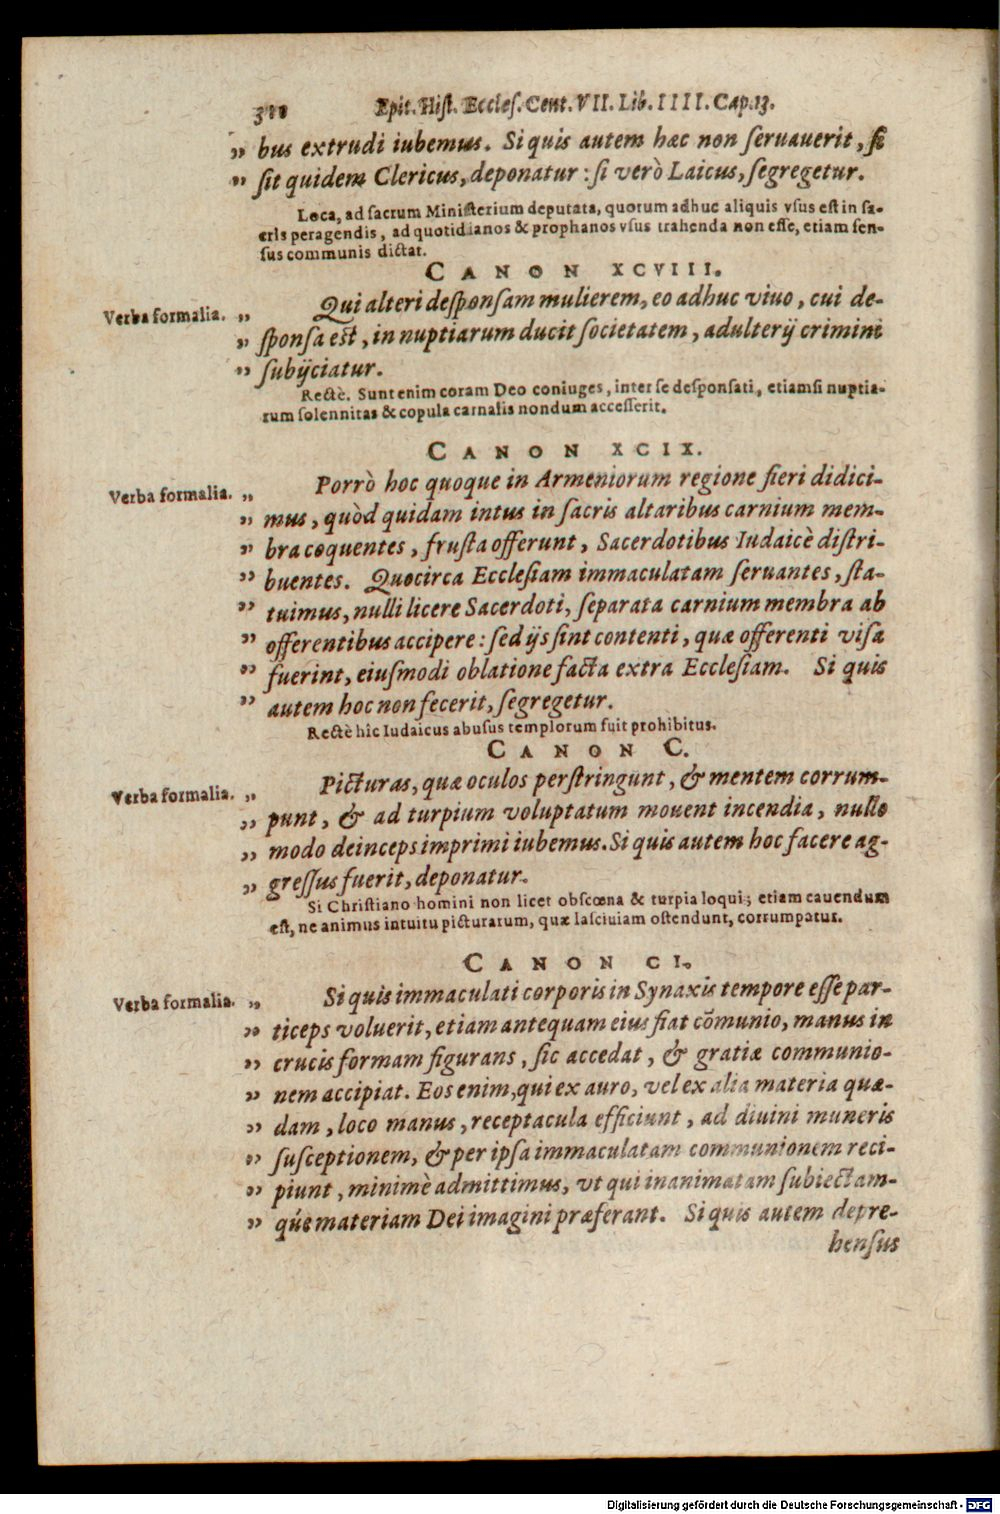 Epit. Hiſt. Eccleſ. Cent. VII. Lib. IIII. Cap. 13.
„ bus extrudi iubemus. Si quis autem hæc non ſeruauerit, ſi
„ ſit quidem Clericus, deponatur: ſi verò Laicus, ſegregetur.
Loca, ad ſacrum Miniſterium deputata, quorum adhuc aliquis vſus eſt in ſa-
cris peragendis, ad quotidianos & prophanos vſus trahenda non eſſe, etiam ſen-
ſus communis dictat.
CANON XCVIII.
Verba formalia. „ Qui alteri deſponſam mulierem, eo adhuc viuo, cui de-
„ ſponſa eſt, in nuptiarum ducit ſocietatem, adulterij crimini
„ ſubijciatur.
Rectè. Sunt enim coram Deo coniuges, inter ſe deſponſati, etiamſi nuptia-
rum ſolennitas & copula carnalis nondum acceſſerit.
CANON XCIX.
Verba formalia. „ Porrò hoc quoque in Armeniorum regione fieri didici-
„ mus, quòd quidam intus in ſacris altaribus carnium mem-
„ bra coquentes, fruſta offerunt, Sacerdotibus Iudaicè diſtri-
„ buentes. Quocirca Eccleſiam immaculatam ſeruantes, ſta-
„ tuimus, nulli licere Sacerdoti, ſeparata carnium membra ab
„ offerentibus accipere: ſed ijs ſint contenti, quæ offerenti viſa
„ fuerint, eiuſmodi oblatione facta extra Eccleſiam. Si quis
„ autem hoc non fecerit, ſegregetur.
Rectè hîc Iudaicus abuſus templorum fuit prohibitus.
CANON C.
Verba formalia. „ Picturas, quæ oculos perſtringunt, & mentem corrum-
„ punt, & ad turpium voluptatum mouent incendia, nullo
„ modo deinceps imprimi iubemus. Si quis autem hoc facere ag-
„ greſſus fuerit, deponatur.
Si Chriſtiano homini non licet obſcœna & turpia loqui; etiam cauendum
eſt, ne animus intuitu picturarum, quæ laſciuiam oſtendunt, corrumpatur.
CANON CI.
Verba formalia. „ Si quis immaculati corporis in Synaxis tempore eſſe par-
„ ticeps voluerit, etiam antequam eius fiat cõmunio, manus in
„ crucis formam figurans, ſic accedat, & gratiæ communio-
„ nem accipiat. Eos enim, qui ex auro, vel ex alia materia quæ-
„ dam, loco manus, receptacula efficiunt, ad diuini muneris
„ ſuſceptionem, & per ipſa immaculatam communionem reci-
„ piunt, minimè admittimus, vt qui inanimatam ſubiectam-
„ q́ue materiam Dei imagini præferant. Si quis autem depre-
henſus
Digitalisierung gefördert durch die Deutsche Forschungsgemeinschaft - DFG